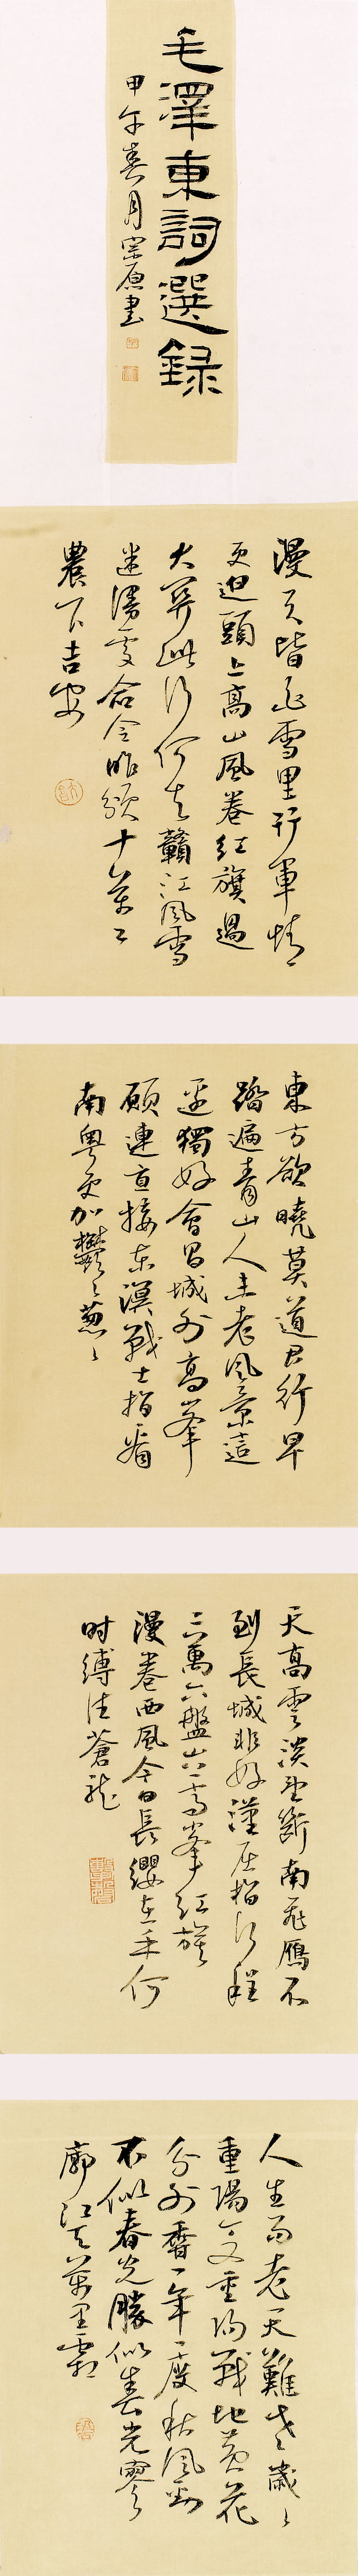 毛澤東詞選錄
甲午春月宗原書
漫天皆白雪里行軍情
更迫頭上高山風卷紅旗過
大關此行何去贛江風雪
迷漫處命令昨頒十萬工
農下吉安
東方欲曉莫道君行早
踏遍青山人未老風景這
邊獨好會昌城外高峯
顛連直接東溟戰士指看
南粵更加鬱々蔥々
天高雲淡望斷南飛鴈不
到長城非好漢屈指行程
二萬六盤山上高峯紅旗
漫卷西風今日長纓在手何
时縛住蒼龍
人生易老天難老歲々
重陽今又重陽戰地黃花
分外香一年一度秋風勁
不似春光勝似春光寥
廓江天萬里霜